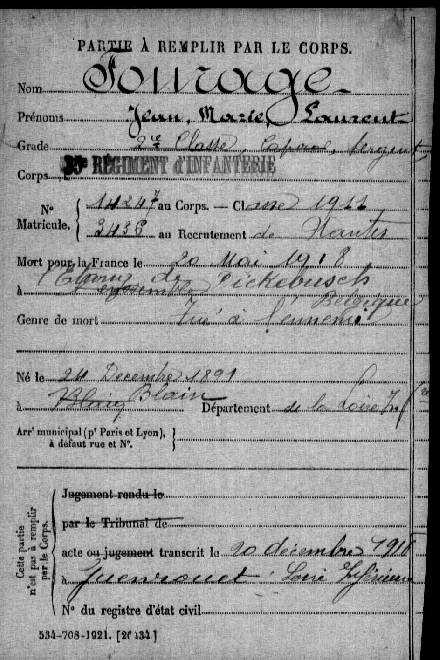 PARTIE À REMPLIR PAR LE CORPS.
Nom Fourage
Prénoms Jean, Marie, Laurent
Grade 2e Classe, Caporal, Sergent
Corps RÉGIMENT D'INFANTERIE
N° Matricule. { 14247 au Corps. — Classe 1911
3438 au Recrutement de Nantes
Mort pour la France le 20 Mai 1918
à Etang de Dickebusch
Belgique
Genre de mort Tué à l'ennemi
Né le 24 Décembre 1891
à Blain Département de la Loire Infre
Arrt municipal (pr Paris et Lyon), à défaut rue et N°. }
Cette partie n'est pas à remplir par le Corps. {
Jugement rendu le
par le Tribunal de
acte ou jugement transcrit le 20 décembre 1918
à Guenrouet Loire Inférieure
N° du registre d'état civil
534-708-1921. [26434]